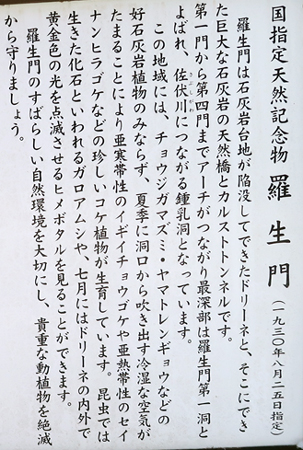 国指定天然記念物 羅生門 (一九三〇年八月二五日指定)
羅生門は石灰岩台地が陥没してできたドリーネと、そこにでき
た巨大な石灰岩の天然橋とカルストトンネルです。
第一門から第四門までアーチがつながり最深部は羅生門第一洞と
よばれ、佐伏川につながる鍾乳洞となっています。
この地域には、チョウジガマズミ・ヤマトレンギョウなどの
好石灰岩植物のみならず、夏季に洞口から吹き出す冷湿な空気が
たまることにより亜寒帯性のイギイチョウゴケや亜熱帯性のセイ
ナンヒラゴケなどの珍しいコケ植物が生育しています。昆虫では
生きた化石といわれるガロアムシや、七月にはドリーネの内外で
黄金色の光を点滅させるヒメボタルを見ることができます。
羅生門のすばらしい自然環境を大切にし、貴重な動植物を絶滅
から守りましょう。